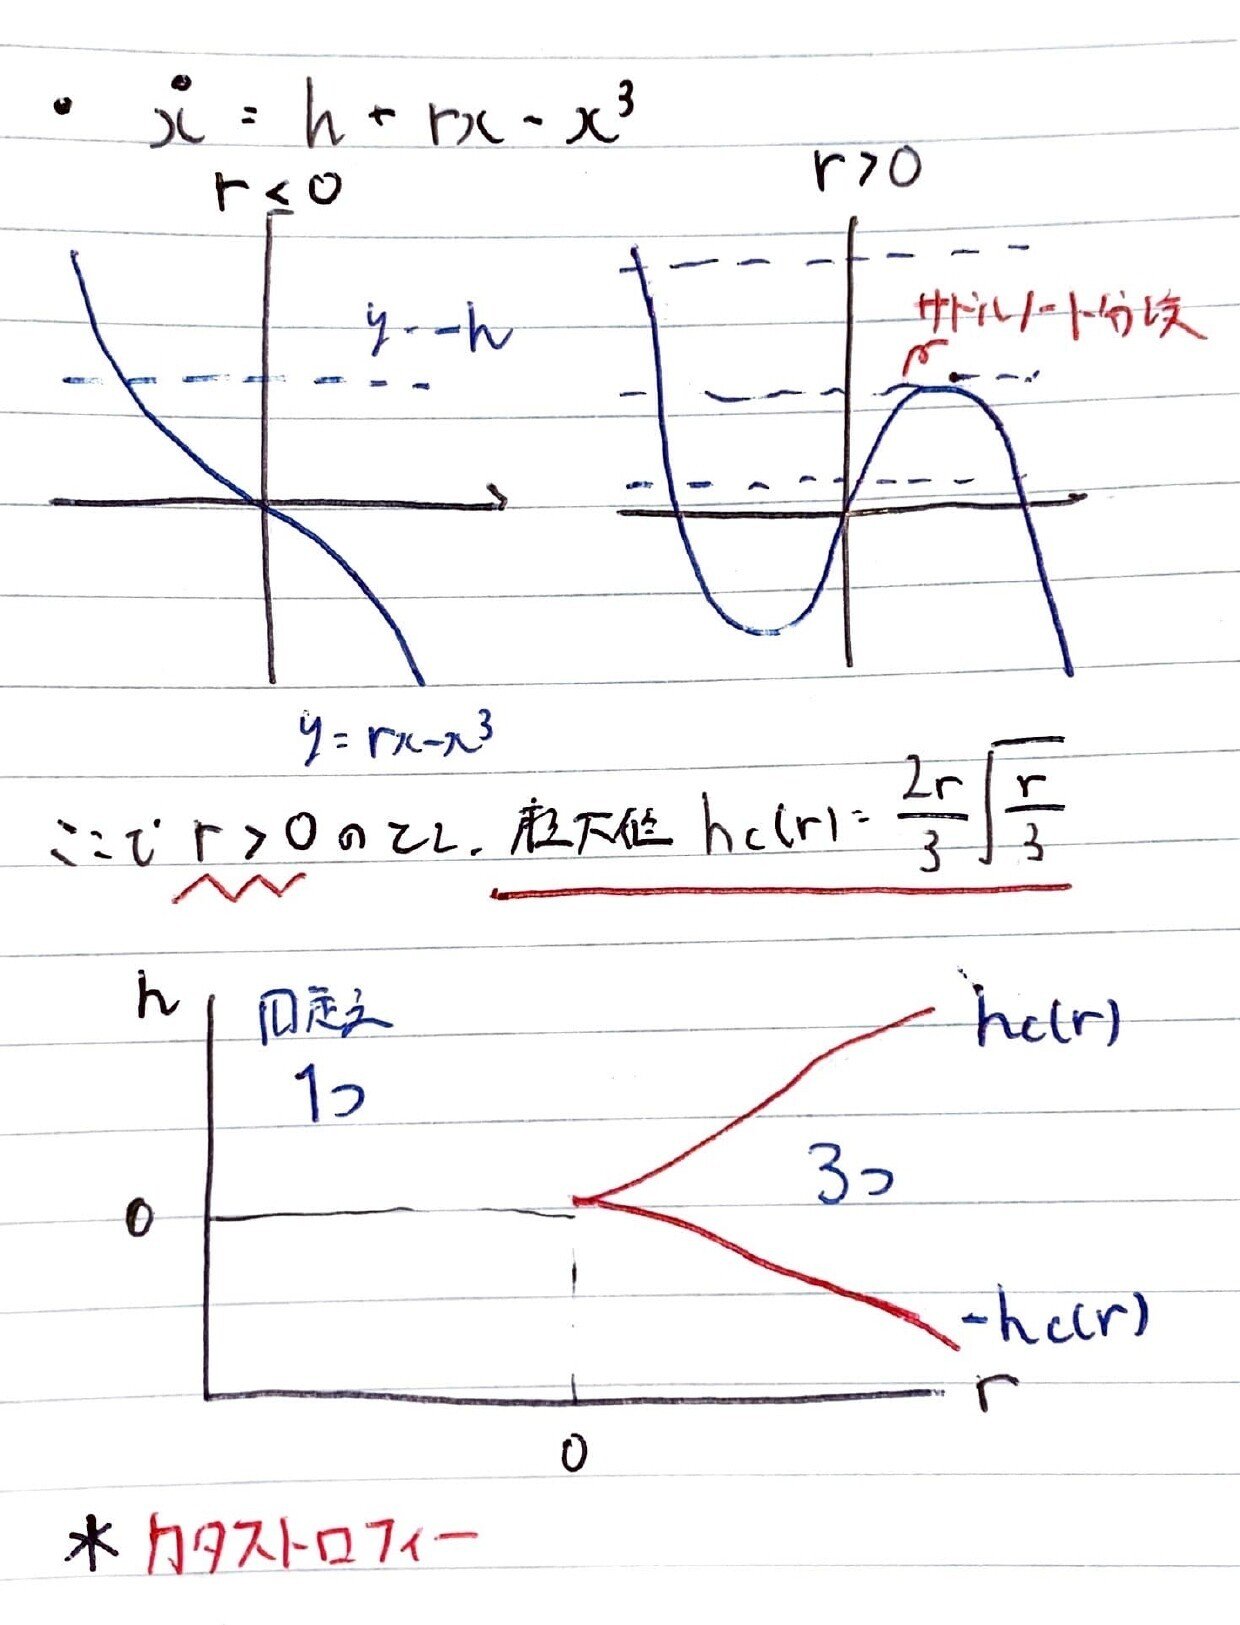 • ẋ = h + rx - x³
r < 0
r > 0
y = -h
サドルノート分岐
y = rx-x³
ここで r > 0 のとし、極大値 hc(r) = 2r/3 √(r/3)
h
固定点
1つ
hc(r)
3つ
0
-hc(r)
r
0
* カタストロフィー